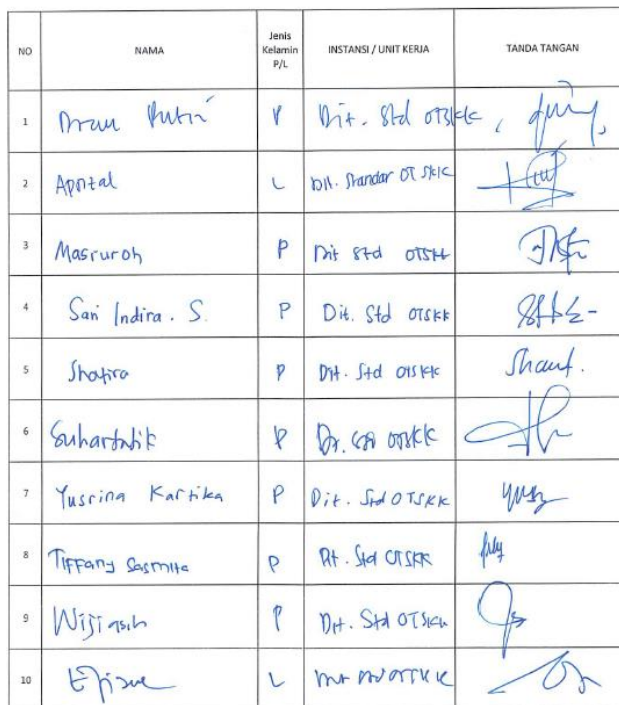 NO NAMA Jenis Kelamin P/L INSTANSI / UNIT KERJA TANDA TANGAN
1 Putri P Dit. Std OTSKK,
2 Aprizal L Dit. Standar OT SKK
3 Masruroh P Dit Std OTSKK
4 Sari Indira. S. P Dit. Std OTSKK
5 Shafira P Dit. Std OTSKK
6 Suhartatik P Dit. Std OTSKK
7 Yusrina Kartika P Dit. Std OTSKK
8 Tiffany Sasmita P Dit. Std OTSKK
9 Wijiasih P Dit. Std OTSKK
10 L